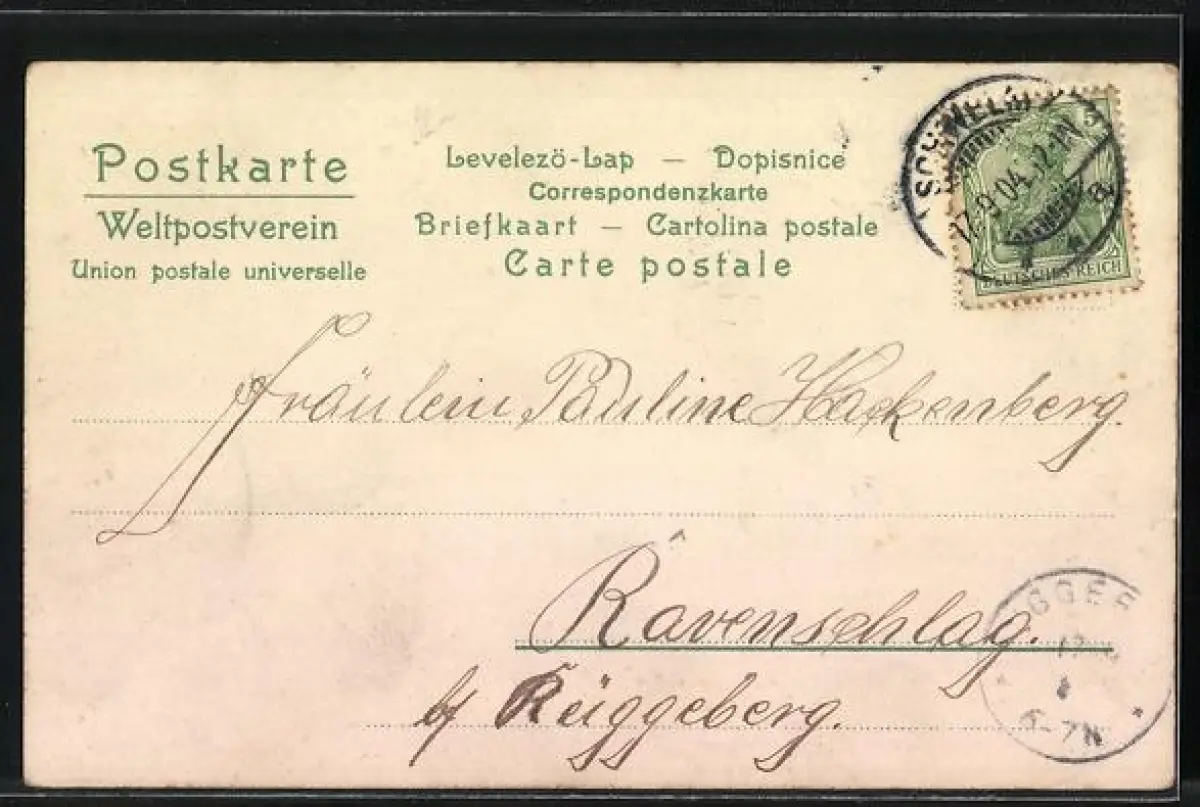 Postkarte
Weltpostverein
Union postale universelle
Levelező-Lap — Dopisnice
Correspondenzkarte
Briefkaart — Cartolina postale
Carte postale
SCHWELM
17.9.04.12-1N
a
5
DEUTSCHES REICH
Fräulein Pauline Hackenberg
Ravenschlag.
b/ Rüggeberg.
GGEB
6-7N